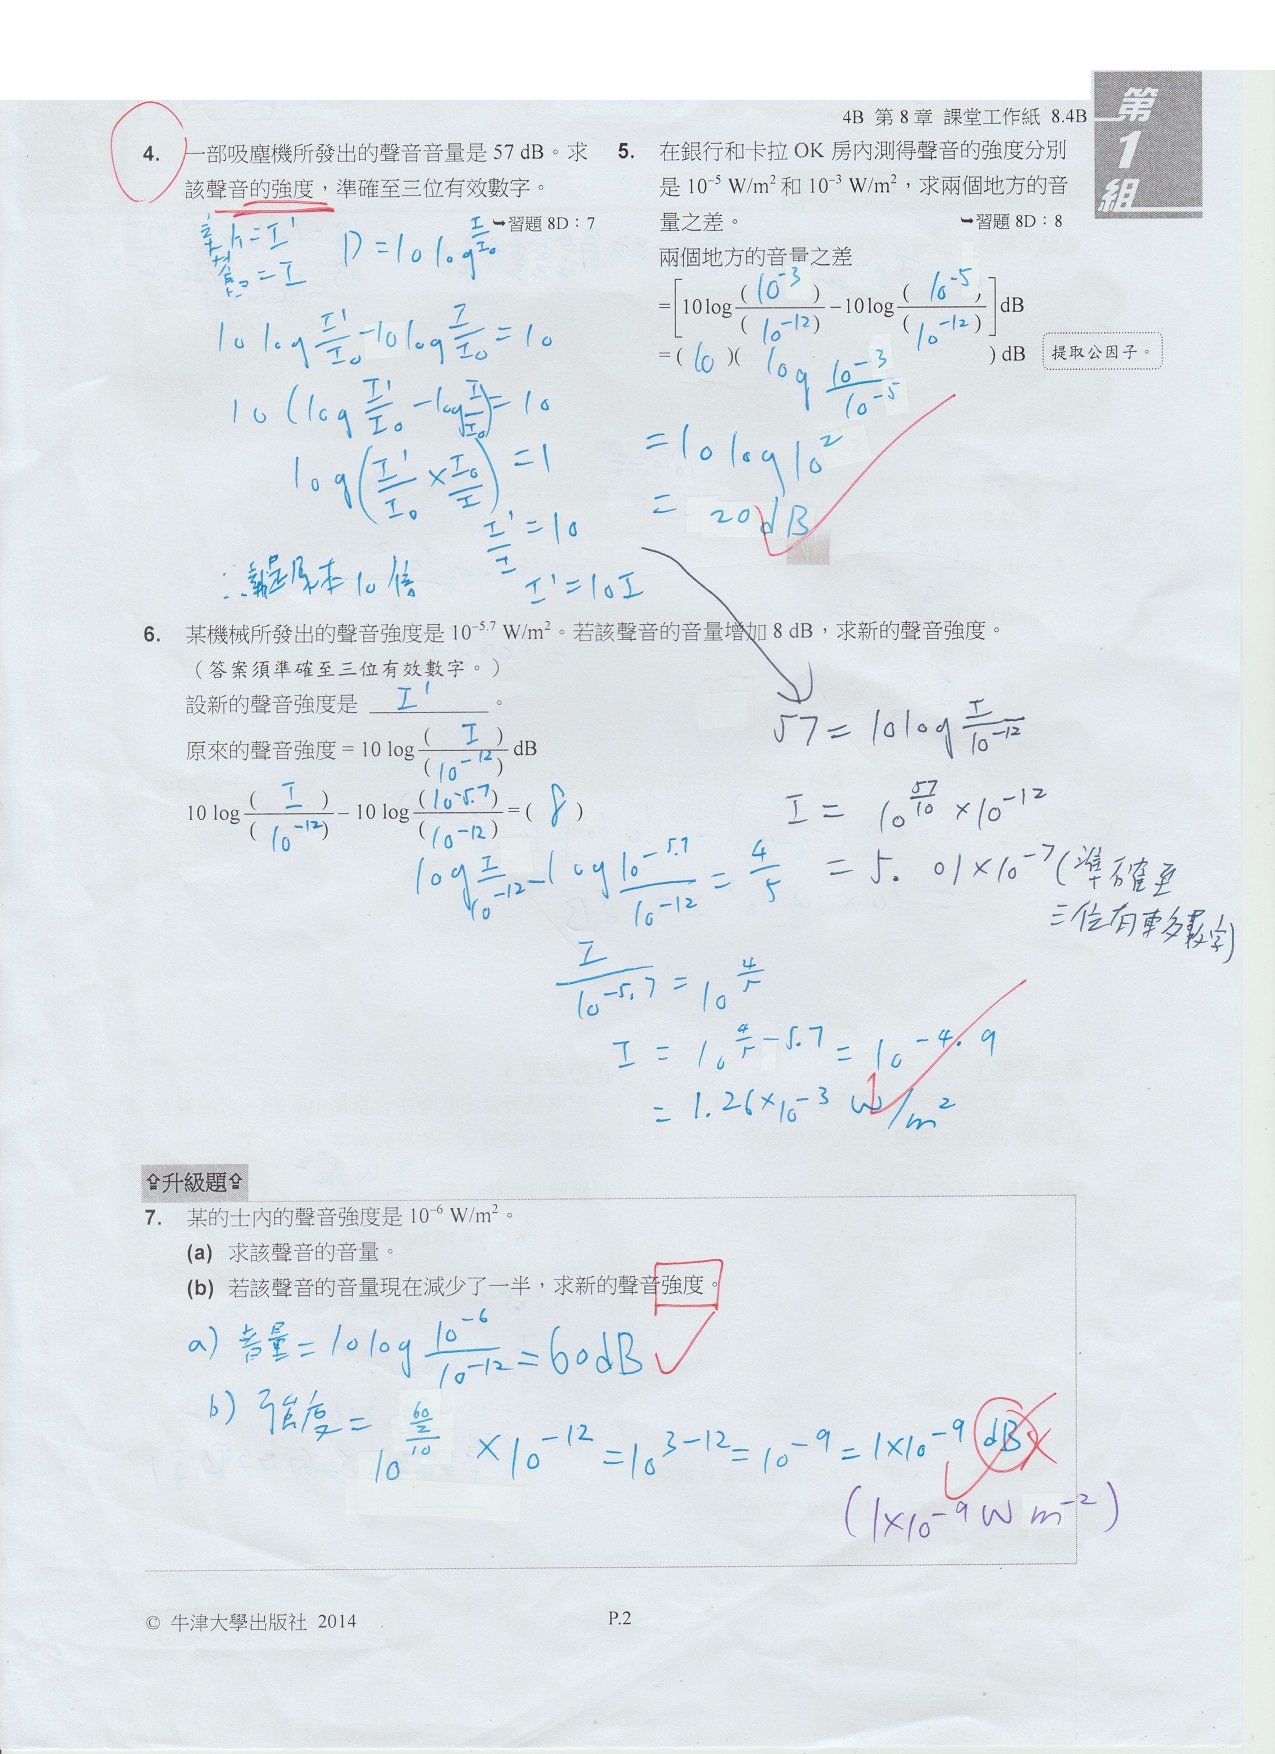 4B 第 8 章 課堂工作紙 8.4B
第
1
組
4. 一部吸塵機所發出的聲音音量是 57 dB。求
該聲音的強度,準確至三位有效數字。
➥習題 8D:7
新 = I'
= I
D = 10 log I/I₀
10 log I'/I₀ - 10 log I/I₀ = 10
10 (log I'/I₀ - log I/I₀) = 10
log (I'/I₀ × I₀/I) = 1
I'/I = 10
I' = 10I
是原本 10 倍
5. 在銀行和卡拉 OK 房內測得聲音的強度分別
是 10⁻⁵ W/m² 和 10⁻³ W/m²,求兩個地方的音
量之差。
➥習題 8D:8
兩個地方的音量之差
= [10 log (10⁻³)/(10⁻¹²) – 10 log (10⁻⁵)/(10⁻¹²)] dB
= ( 10 )( log 10⁻³/10⁻⁵ ) dB
提取公因子。
= 10 log 10²
= 20 dB
6. 某機械所發出的聲音強度是 10⁻⁵·⁷ W/m²。若該聲音的音量增加 8 dB,求新的聲音強度。
(答案須準確至三位有效數字。)
設新的聲音強度是 I' 。
原來的聲音強度 = 10 log (I)/(10⁻¹²) dB
10 log (I)/(10⁻¹²) – 10 log (10⁻⁵·⁷)/(10⁻¹²) = ( 8 )
log I/10⁻¹² - log 10⁻⁵·⁷/10⁻¹² = 4/5
I/10⁻⁵·⁷ = 10^(4/5)
I = 10^(4/5 - 5.7) = 10⁻⁴·⁹
= 1.26×10⁻³ W/m²
57 = 10 log I/10⁻¹²
I = 10^(57/10) × 10⁻¹²
= 5.01×10⁻⁷ (準確至
三位有效數字)
⇧升級題⇧
7. 某的士內的聲音強度是 10⁻⁶ W/m²。
(a) 求該聲音的音量。
(b) 若該聲音的音量現在減少了一半,求新的聲音強度。
a) 音量 = 10 log 10⁻⁶/10⁻¹² = 60 dB
b) 強度 = 10^((60/2)/10) × 10⁻¹² = 10³⁻¹² = 10⁻⁹ = 1×10⁻⁹ dB
(1×10⁻⁹ W m⁻²)
© 牛津大學出版社 2014
P.2